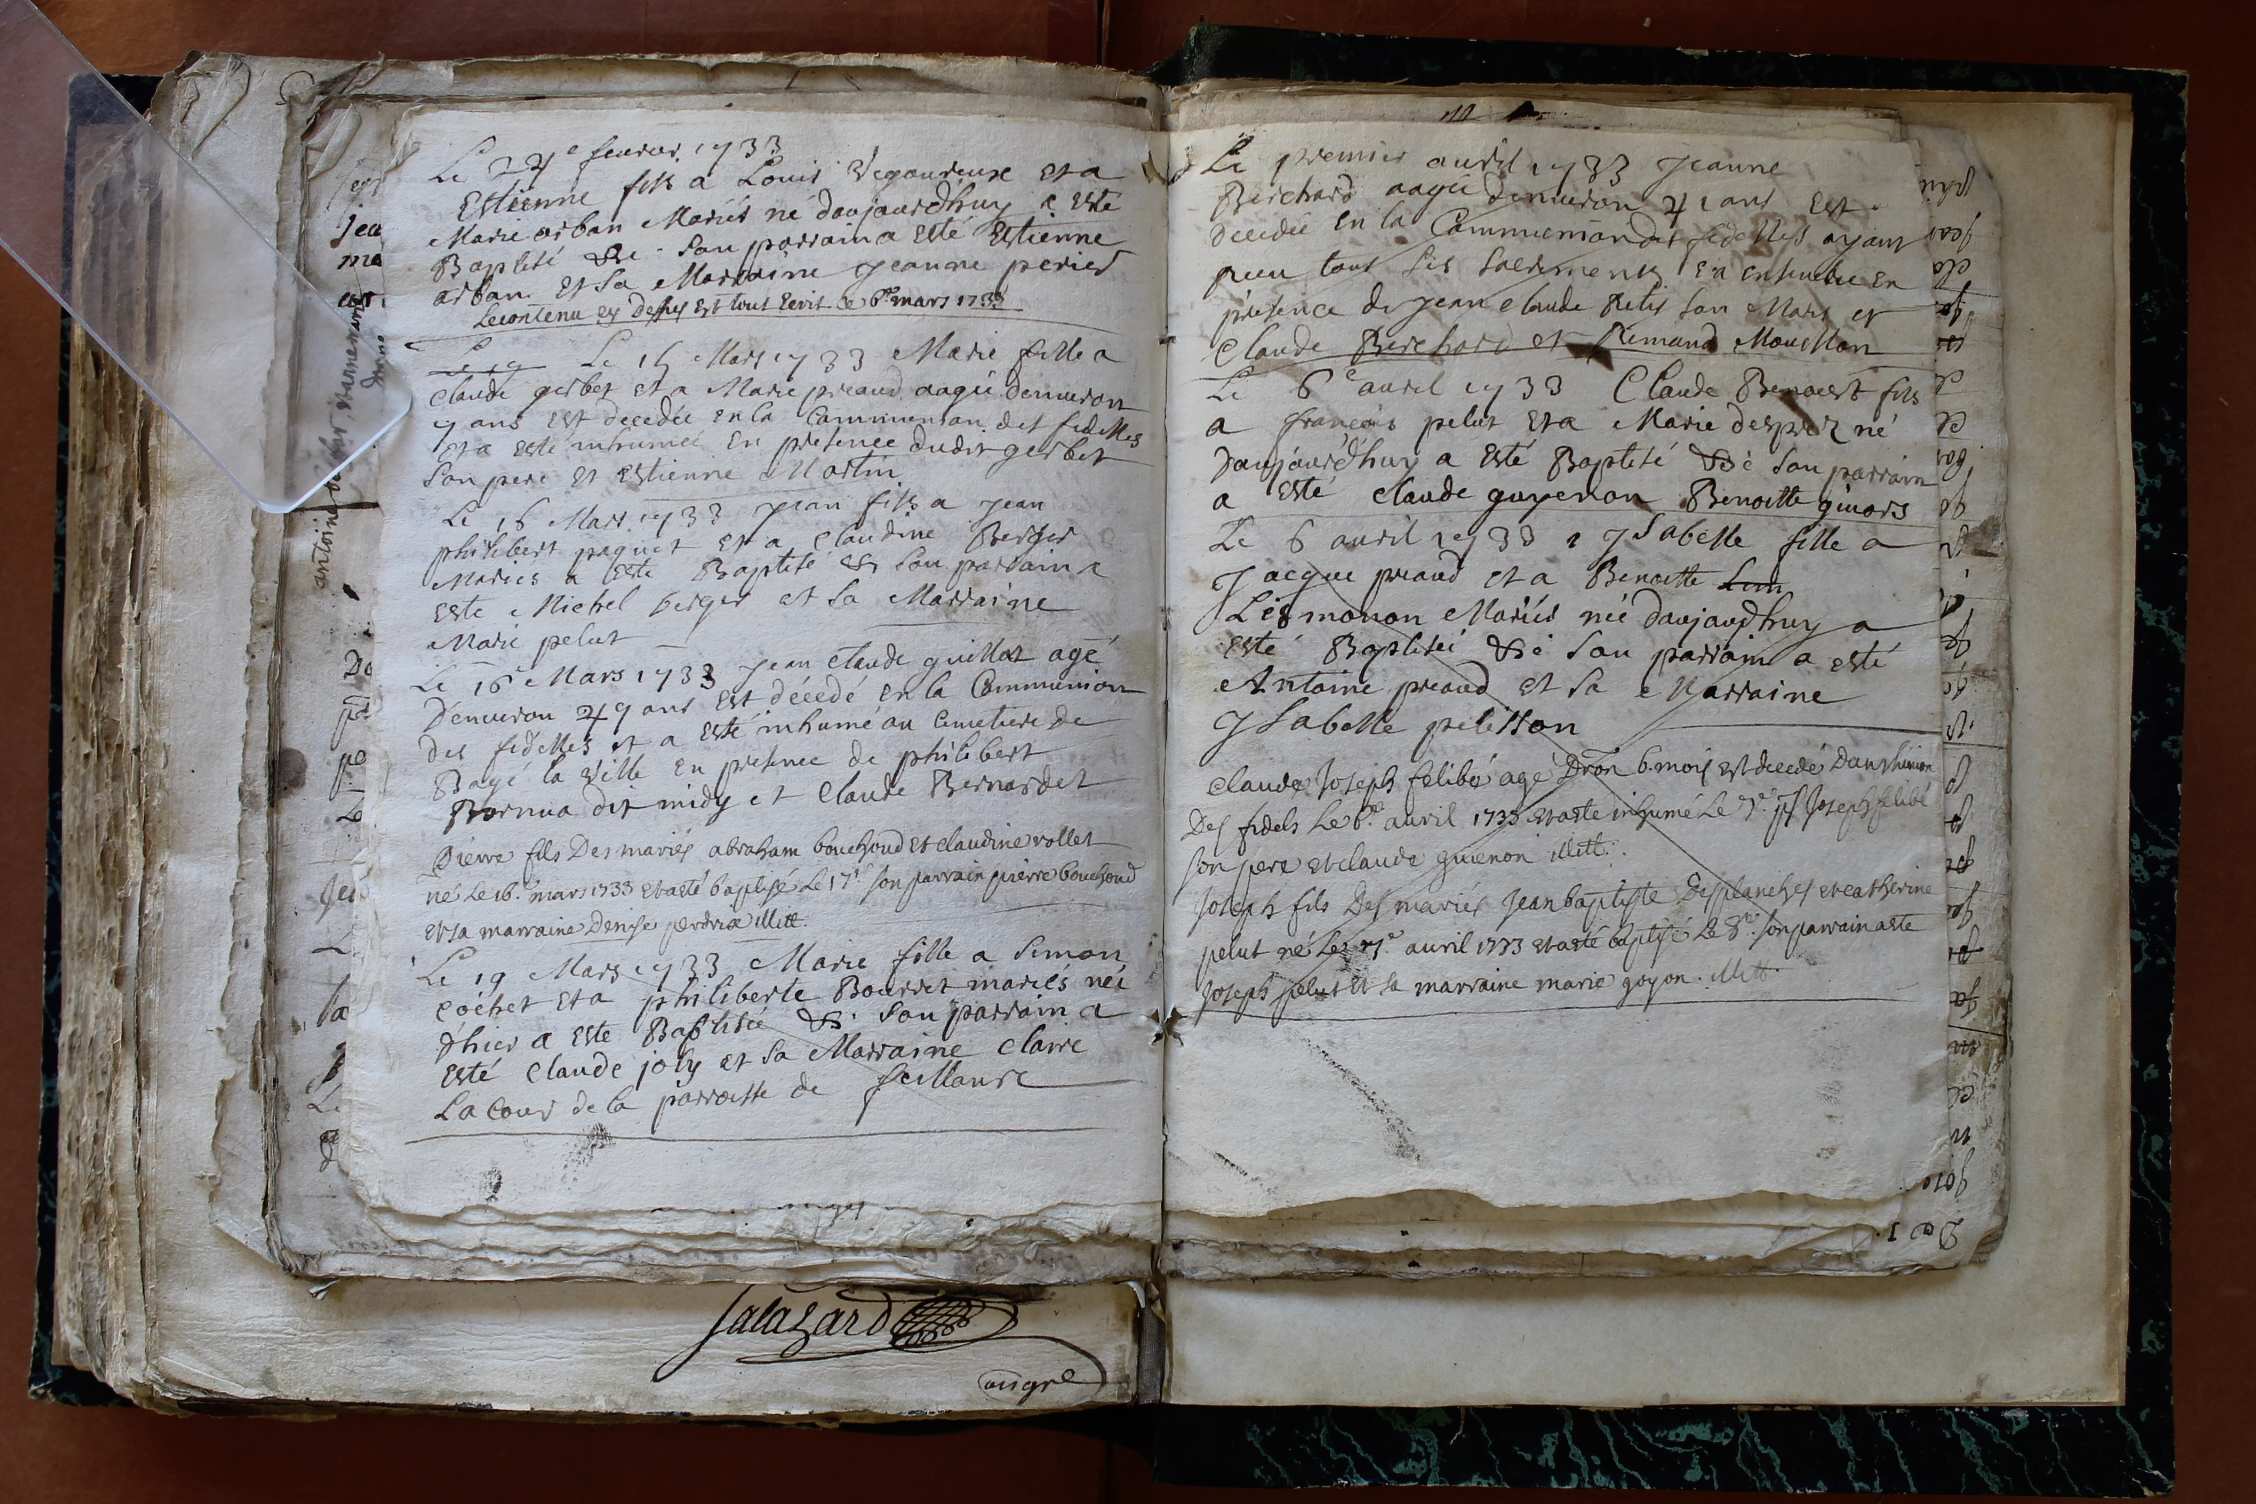 Le 24e feurier 1733
Estienne fils a Louis Vegoureux et a
Marie arban Mariés né daujourdhuy a Este
Baptisé &c. Son parrain a Esté Estienne
arban et Sa Marraine Jeanne perier
Lecontenu cy dessus est tout Ecrit Le 6e mars 1733
Le 15 Mars 1733 Marie fille a
Claude gerbet et a Marie preaud aagée denuiron
7 ans est decedée en la Communion des fidelles
Et a esté inhumée En presence dudit gerbet
Son pere et Estienne Martin
Le 16 Mars 1733 Jean fils a Jean
philibert paquet et a Claudine Berger
Mariés a Este Baptisé &c Son parrain a
Este Michel berger et Sa Marraine
Marie pelut
Le 16e Mars 1733 Jean Claude guillot agé
Denuiron 49 ans Est décedé en la Communion
des fidelles et a esté inhumé au Cimetiere de
Bagé la ville en presence de philibert
Bornua dit midy et Claude Bernardet
Pierre fils Des mariés abraham bouchoud et claudine rollet
né Le 16e mars 1733 et a eté baptisé Le 17e Son parrain pierre bouchoud
et sa marraine Denise perdrix illitt.
Le 19 Mars 1733 Marie fille a Simon
Cochet et a philiberte Bourret mariés née
d'hier a este Baptisée &c. Son parrain a
Esté Claude joly et Sa Marraine Claire
La Cour de la parroisse de feillans
Salazard
Le premier auril 1733 Jeanne
Berchard aagée denuiron 41 ans Est
Decedée en la Communion des fidelles ayant
receu tous Ses Sacrements Et a ensevelie En
présence de Jean Claude petit Son Mary et
Claude Berchard et Rimand Mouillon
Le 6e auril 1733 Claude Benoist fils
a françois pelut et a Marie desprez né
Daujourd'huy a Esté Baptisé &c Son parrain
a Esté Claude guyenon Benoitte givors
Le 6 auril 1733 Ysabelle fille a
Jacque preaud et a Benoitte Lem
Lesmonon Mariés née daujaudhuy a
Esté Baptisée &c Son parrain a esté
Antoine preaud et Sa Marraine
Ysabelle pelisson
Claude Joseph felibé agé Dron 6. mois est decedé Dans Lunion
Des fidels Le 6e auril 1733 et a ete inhumé Le 7e pt Joseph felibé
son pere et claude guienon illitt.
Joseph fils Des mariés Jean baptiste Desplanches et catherine
pelut né Le 7e auril 1733 et a eté baptisé Le 8e Son parrain a ete
Joseph pelut et sa marraine marie goyon. illitt.